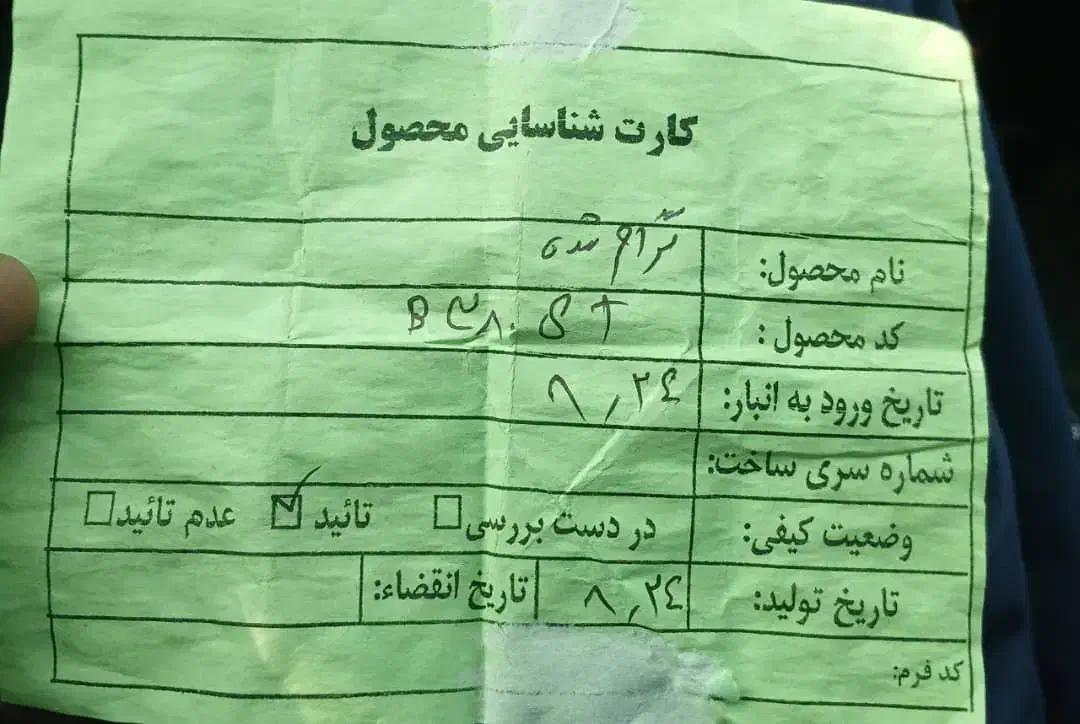 کارت شناسایی محصول
نام محصول:
کد محصول :
تاریخ ورود به انبار: ۸,۲۴
شماره سری ساخت:
وضعیت کیفی: در دست بررسی☐ تائید ☑ عدم تائید☐
تاریخ تولید: ۸,۲۴ تاریخ انقضاء:
کد فرم: